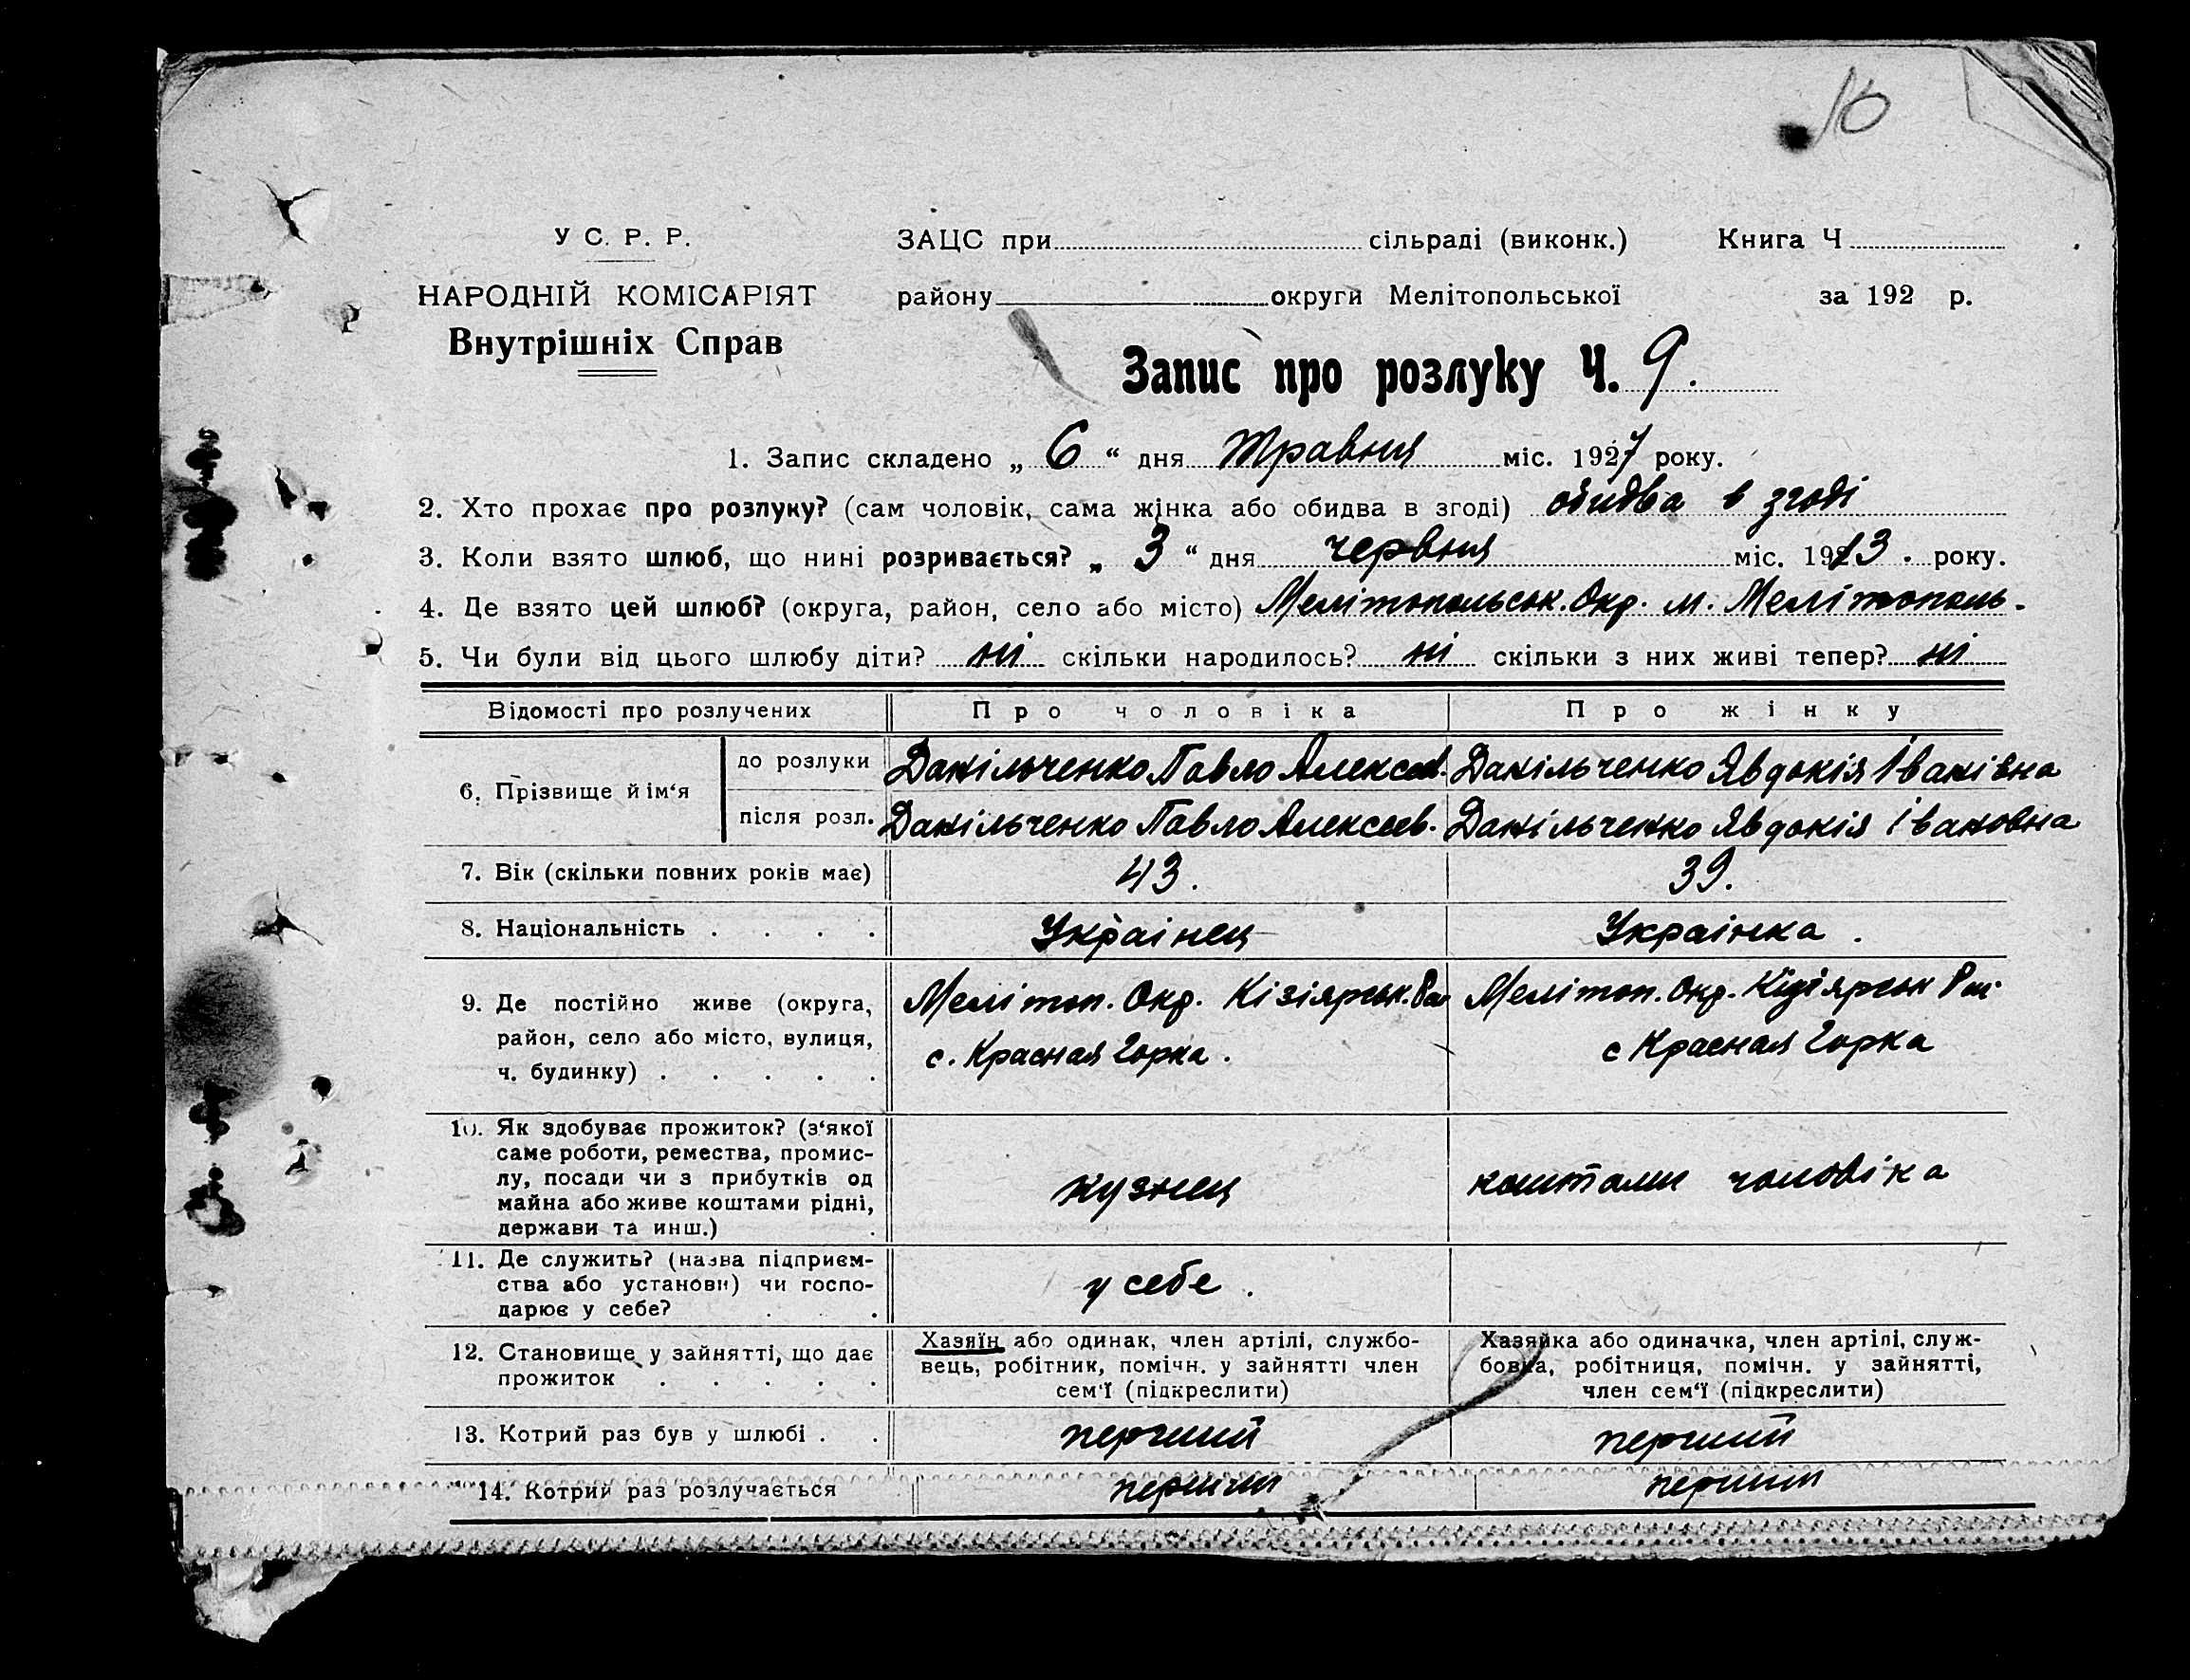 16
У С. Р. Р.
НАРОДНІЙ КОМІСАРІЯТ
Внутрішніх Справ
ЗАЦС при сільраді (виконк.) Книга Ч
району округи Мелітопольської за 192 р.
Запис про розлуку Ч. 9.
1. Запис складено „ 6 “ дня Травня міс. 1927 року.
2. Хто прохає про розлуку? (сам чоловік, сама жінка або обидва в згоді) обидва в згоді
3. Коли взято шлюб, що нині розривається? „ 3 “ дня червня міс. 1913. року.
4. Де взято цей шлюб? (округа, район, село або місто) Мелітопольськ. Окр. м. Мелітополь.
5. Чи були від цього шлюбу діти? ні скільки народилось? ні скільки з них живі тепер? ні
Відомості про розлучених Про чоловіка Про жінку
6. Прізвище й ім‘я
до розлуки Данільченко Павло Алексеев. Данільченко Явдокія Іванівна
після розл. Данільченко Павло Алексеев. Данільченко Явдокія Івановна
7. Вік (скільки повних років має) 43. 39.
8. Національність . . . . Украінец Украінка .
9. Де постійно живе (округа, Меліт­оп. Окр. Кізіярськ. Рай Мелітоп. Окр. Кізіярськ Рай.
район, село або місто, вулиця, с. Красная Горка. с Красная Горка
ч. будинку) . . . . .
10. Як здобуває прожиток? (з‘якої
саме роботи, ремества, промис-
лу, посади чи з прибутків од кузнец коштами чоловіка
майна або живе коштами рідні,
держави та инш.) .
11. Де служить? (назва підприєм-
ства або установи) чи госпо- у себе .
дарює у себе? . .
12. Становище у зайнятті, що дає
прожиток . . . . .
Хазяїн або одинак, член артілі, службо-
вець, робітник, помічн. у зайнятті член
сем‘ї (підкреслити)
Хазяйка або одиначка, член артілі, служ-
бовка, робітниця, помічн. у зайнятті,
член сем‘ї (підкреслити)
13. Котрий раз був у шлюбі . . перший перший
14. Котрий раз розлучається перший перший